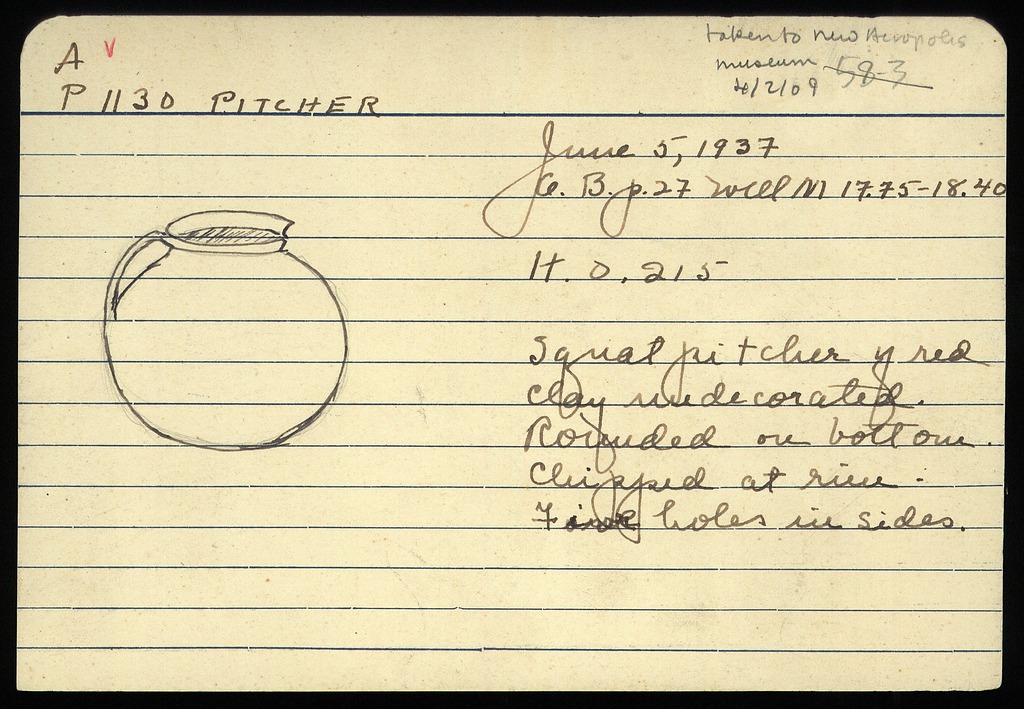 A v
P 1130 PITCHER
taken to new Acropolis
museum 58-3
4/2/09
June 5, 1937
B. p. 27 Well M 17.75-18.40
H. 0.215
Squat pitcher of red
clay undecorated.
Rounded on bottom.
Chipped at rim.
holes in sides.